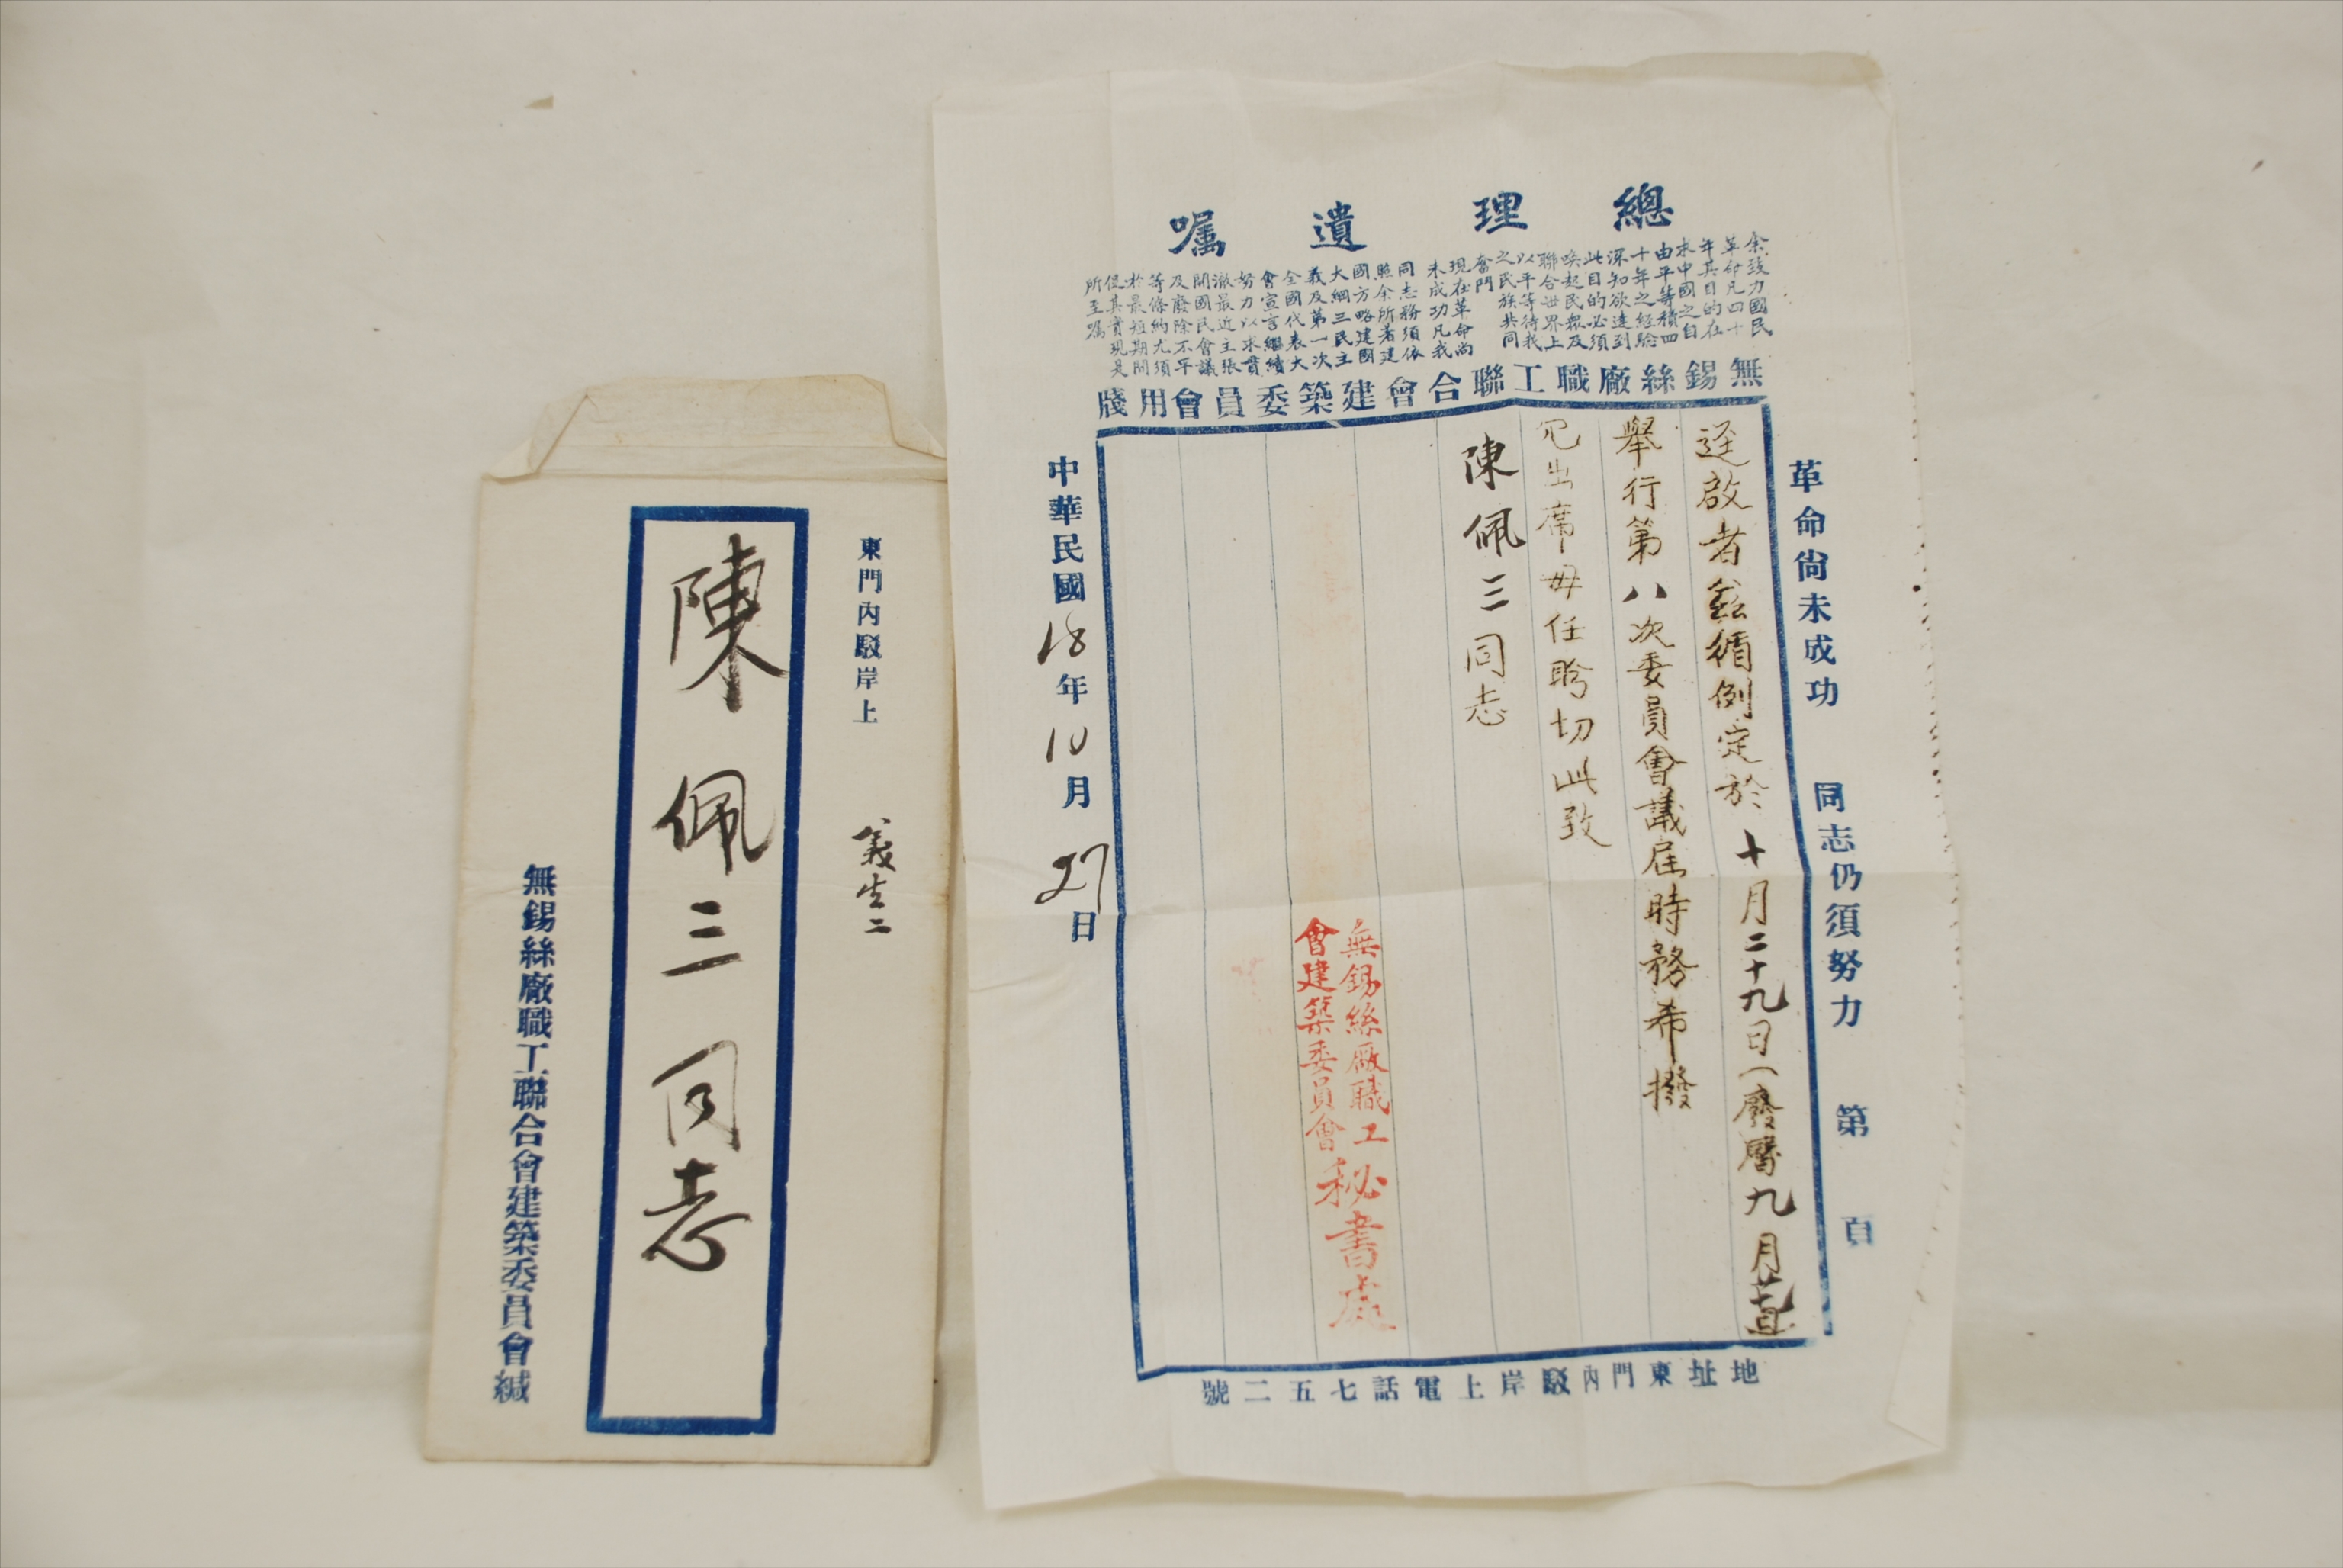 總理遺囑
余致力國民
革命凡四十
年其目的在
求中國之自
由平等積四
十年之經驗
深知欲達到
此目的必須
喚起民眾及
聯合世界上
以平等待我
之民族共同
奮鬥
現在革命尚
未成功凡我
同志務須依
照余所著建
國方略建國
大綱三民主
義及第一次
全國代表大
會宣言繼續
努力以求貫
澈最近主張
開國民會議
及廢除不平
等條約尤須
於最短期間
促其實現是
所至囑
無錫絲廠職工聯合會建築委員會用牋
革命尚未成功 同志仍須努力 第 頁
逕啟者茲循例定於十月二十九日(廢曆九月
舉行第八次委員會議屆時務希撥
冗出席毋任盼切此致
陳佩三同志
無錫絲廠職工
會建築委員會
秘書處
中華民國18年10月27日
地址東門內駁岸上電話七五二號
東門內駁岸上
義生二
陳佩三同志
無錫絲廠職工聯合會建築委員會緘